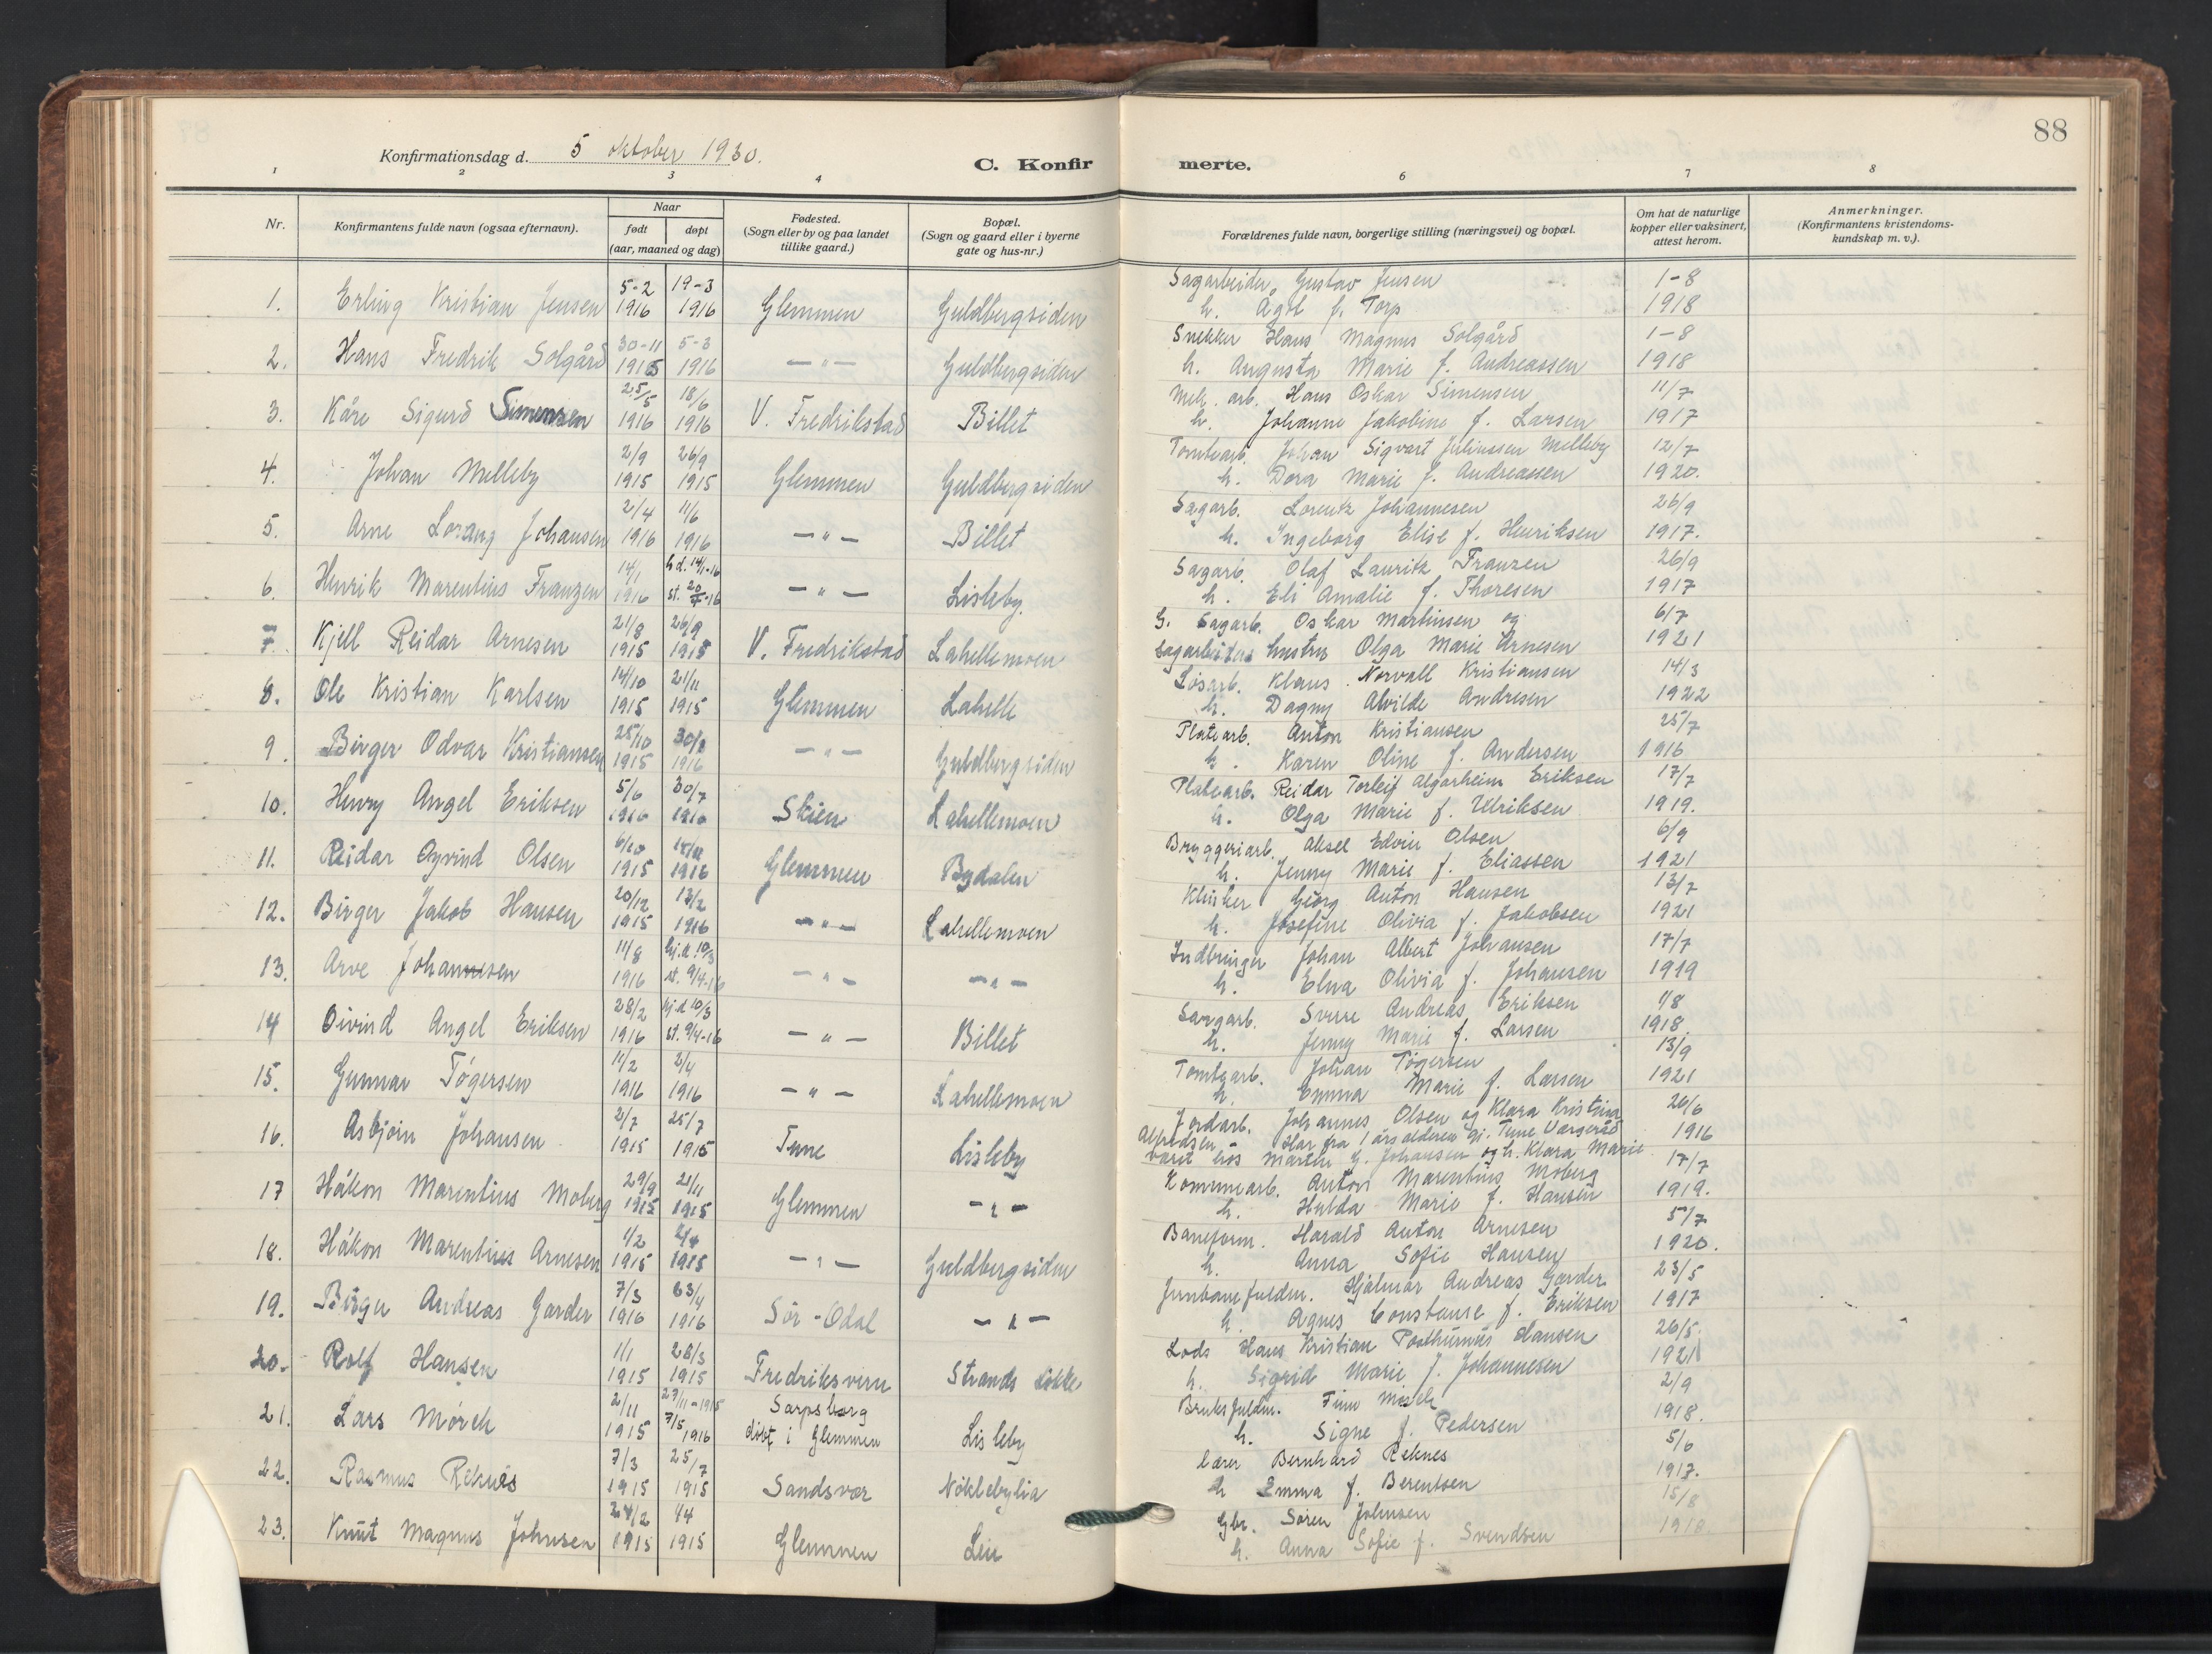 88
Konfirmationsdag d. 5 oktober 1930.
C. Konfir merte.
1 2 3 4 6 7 8
Nr.
Konfirmantens fulde navn (ogsaa efternavn).
Naar
født døpt
(aar, maaned og dag)
Fødested.
(Sogn eller by og paa landet
tillike gaard.)
Bopæl.
(Sogn og gaard eller i byerne
gate og hus-nr.)
Forældrenes fulde navn, borgerlige stilling (næringsvei) og bopæl.
Om hat de naturlige
kopper eller vaksinert,
attest herom.
Anmerkninger.
(Konfirmantens kristendoms-
kundskap m. v.).
5-2 19-3 Sagarbeider, Gustav Jensen 1-8
1. Erling Kristian Jensen 1916 1916 Glemmen Guldbergsiden h. Agot f. Torp 1918
30-11 5-3 Snekker Hans Magnus Solgård 1-8
2. Hans Fredrik Solgård 1915 1916 — " — Guldbergsiden h. Augusta Marie f. Andreassen 1918
25/5 18/6 Mek. arb. Hans Oskar Simensen 11/7
3. Kåre Sigurd Simensen 1916 1916 V. Fredrikstad Billet h. Johanne Jakobine f. Larsen 1917
2/9 26/9 Tomtearb. Johan Sigvart Juliussen Melleby 12/7
4. Johan Melleby 1915 1915 Glemmen Guldbergsiden h. Dora Marie f. Andreassen 1920.
2/4 11/6 Sagarb. Lorentz Johannesen 26/9
5. Arne Lorang Johansen 1916 1916 — " — Billet h. Ingeborg Elise f. Henriksen 1917.
14/1 hd. 14/1-16 Sagarb. Olaf Lauritz Franzen 26/9
6. Henrik Marentius Franzen 1916 st. 20/4-16 — " — Lisleby. h. Eli Amalie f. Thoresen 1917
21/8 26/9 G. Sagarb. Oskar Martinsen og 6/7
7. Kjell Reidar Arnesen 1915 1915 V. Fredrikstad Lahellemoen sagarbeiders hustru Olga Marie Arnesen 1921
14/10 21/11 Løsarb. Klaus Norvall Kristiansen 14/3
8. Ole Kristian Karlsen 1915 1915 Glemmen Lahelle h. Dagny Alvilde Andresen 1922
25/10 Platearb. Anton Kristiansen 25/7
9. Birger Odvar Kristiansen 1915 1916 — " — Guldbergsiden h. Karen Oline f. Andersen 1916
5/6 30/7 Platearb. Reidar Torleif Algarheim Eriksen 17/7
10. Henry Angel Eriksen 1916 1916 Skien Lahellemoen h. Olga Marie f. Ulriksen 1919.
6/10 Bryggeriarb. Aksel Edvin Olsen 6/9
11. Reidar Øyvind Olsen 1915 1916 Glemmen Bydalen h. Jenny Marie f. Eliassen 1921
20/12 13/2 Klinker Georg Anton Hansen 13/7
12. Birger Jakob Hansen 1915 1916 — " — Lahellemoen h. Josefine Olivia f. Jakobsen 1921
11/8 hj.d. 10/3 Indbringer Johan Albert Johansen 17/7
13. Arve Johannesen 1916 st. 9/4-16 — " — — " — h. Elna Olivia f. Johansen 1919
28/2 hj.d. 10/3 Sangarb. Sverre Andreas Eriksen 1/8
14 Øivind Angel Eriksen 1916 st. 9/4-16 — " — Billet h. Jenny Marie f. Larsen 1918.
11/2 2/4 Tomtearb. Johan Tøgersen 13/9
15. Gunnar Tøgersen 1916 1916 — " — Lahellemoen h. Emma Marie f. Larsen 1921
2/7 25/7 Jordarb. Johannes Olsen og Klara Kristina 26/6
16. Asbjørn Johansen 1915 1915 Tune Lisleby Alfredsen Har fra 1 års alderen gj. Tune Værgeråd 1916
været hos Marthe G. Johansen og h. Klara Marie 17/7
29/9 21/11 Kommunearb. Anton Marentius Moberg
17 Håkon Marentius Moberg 1915 1915 Glemmen — " — h. Hulda Marie f. Hansen 1919.
1/2 4/4 Baneform. Harald Anton Arnesen 5/7
18. Håkon Marentius Arnesen 1915 1915 — " — Guldbergsiden h. Anna Sofie Hansen 1920.
7/3 23/4 Jernbanefuldm. Hjalmar Andreas Garder 23/5
19. Birger Andreas Garder 1916 1916 Sør-Odal — " — h. Agnes Constanse f. Eriksen 1917
1/1 28/3 Lods Hans Kristian Posthumus Hansen 26/5
20. Rolf Hansen 1915 1915 Fredriksvern Strands Løkke h. Sigrid Marie f. Johannesen 1921
2/11 27/11-1915 Sarpsborg Bruksfuldm. Finn Mørch 2/9
21. Lars Mørch 1915 7/5 1916 døbt i Glemmen Lisleby h. Signe f. Pedersen 1918.
7/3 25/7 Lærer Bernhard Reknes 5/6
22. Rasmus Reknes 1915 1915 Sandsvær Nøklebylia h Emma f. Berentsen 1917.
24/2 4/4 Gbr. Søren Johnsen 15/8
23. Knut Magnus Johnsen 1915 1915 Glemmen Lie h. Anna Sofie f. Svendsen 1918.